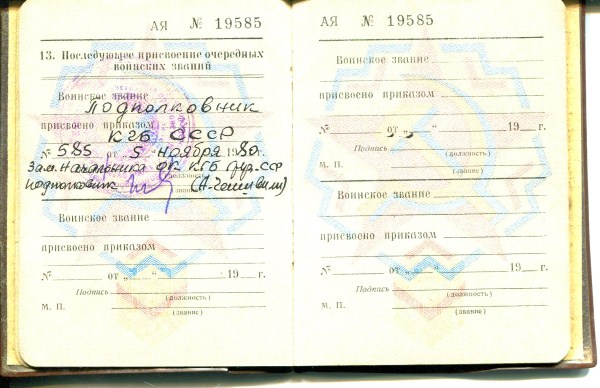 АЯ № 19585
13. Последующее присвоение очередных
воинских званий
Воинское звание
Подполковник
присвоено приказом
КГБ СССР
№ 585 от "5" ноября 1980 г.
Зам. Начальника ОК КГБ Груз.ССР
(должность)
подполковник
(звание)
Воинское звание
присвоено приказом
№ от " " 19 г.
Подпись
(должность)
М. П.
(звание)
АЯ № 19585
Воинское звание
присвоено приказом
№ от " " 19 г.
Подпись
(должность)
М. П.
(звание)
Воинское звание
присвоено приказом
№ от " " 19 г.
Подпись
(должность)
М. П.
(звание)